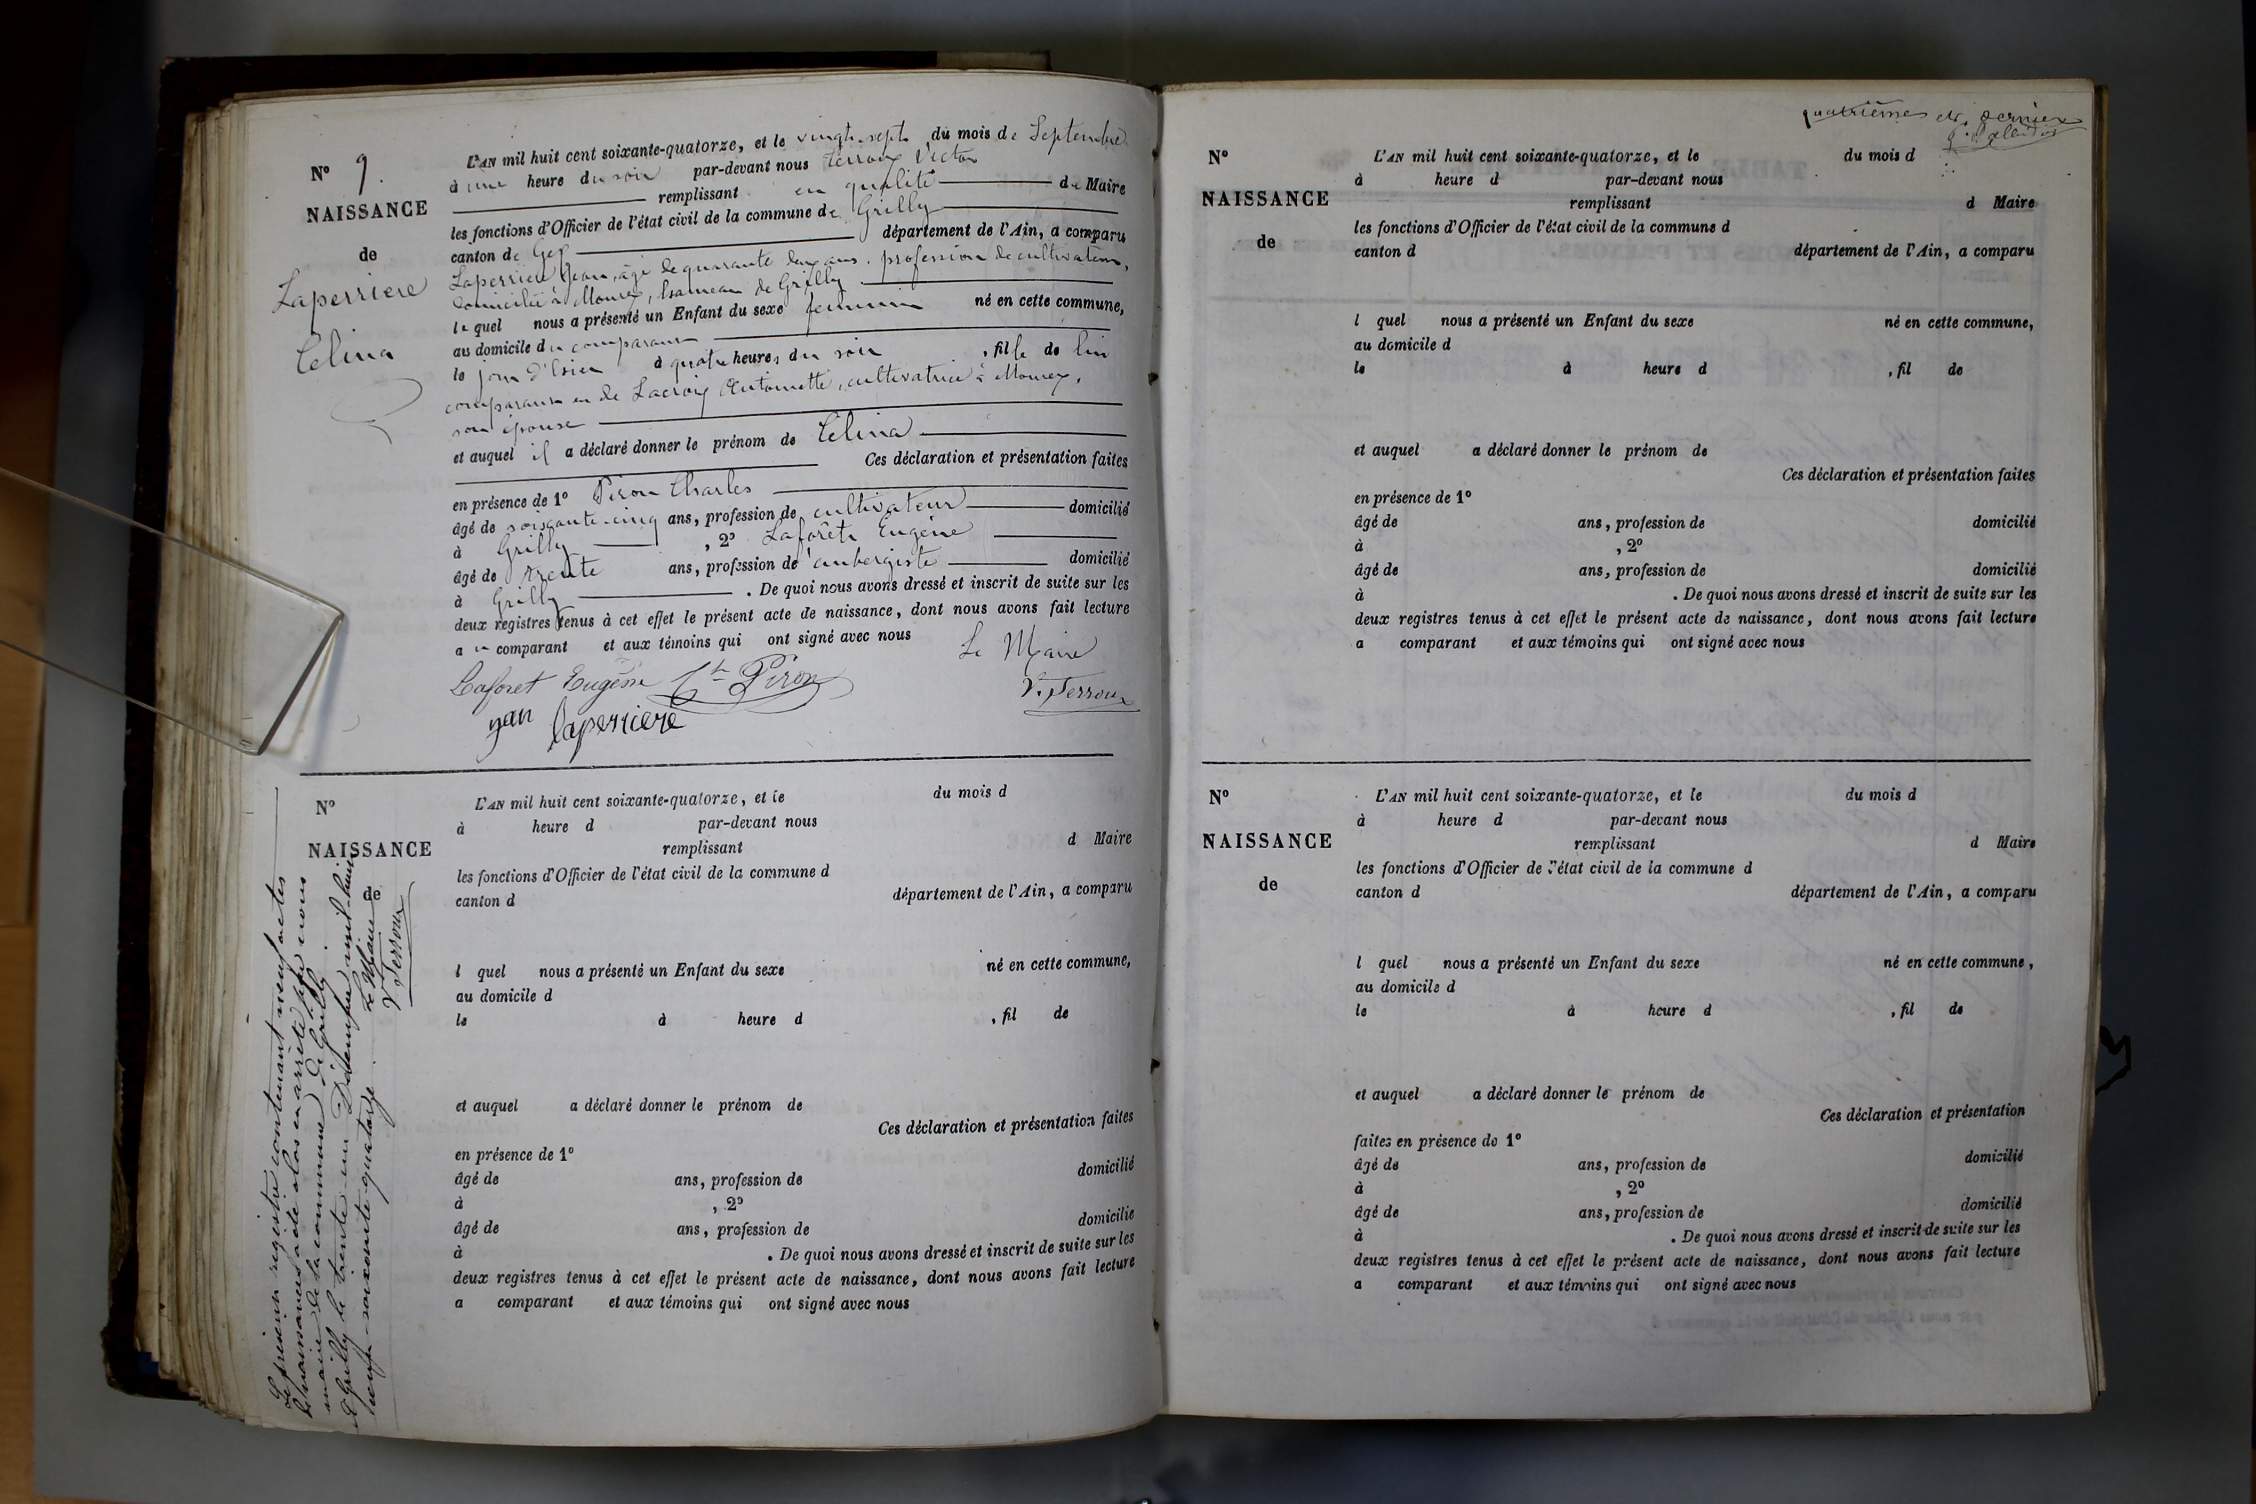 N° 9.
NAISSANCE
de
Laperriere
Celina
L'AN mil huit cent soixante-quatorze, et le vingt-sept du mois de Septembre
à une heure du soir par-devant nous Perroux Victor
remplissant en qualité de Maire
les fonctions d'Officier de l'état civil de la commune de Grilly
canton de Gex département de l'Ain, a comparu
Laperriere Jean, âgé de quarante deux ans, profession de cultivateur,
domicilié à Mourex, hameau de Grilly
le quel nous a présenté un Enfant du sexe feminin né en cette commune,
au domicile du comparant
le jour d'hier à quatre heures du soir, fille de lui
comparant et de Lacroix Antoinette, cultivatrice à Mourex,
son épouse
et auquel il a déclaré donner le prénom de Celina
Ces déclaration et présentation faites
en présence de 1° Piron Charles
âgé de soixante-cinq ans, profession de cultivateur domicilié
à Grilly, 2° Laforêt Eugène
âgé de trente ans, profession de aubergiste domicilié
à Grilly. De quoi nous avons dressé et inscrit de suite sur les
deux registres tenus à cet effet le présent acte de naissance, dont nous avons fait lecture
au comparant et aux témoins qui ont signé avec nous
Le Maire
Laforet Eugène Ch Piron V. Perroux
jean laperriere
N°
NAISSANCE
de
L'AN mil huit cent soixante-quatorze, et le du mois d
à heure d par-devant nous
remplissant d Maire
les fonctions d'Officier de l'état civil de la commune d
canton d département de l'Ain, a comparu
l quel nous a présenté un Enfant du sexe né en cette commune,
au domicile d
le à heure d , fil de
et auquel a déclaré donner le prénom de
Ces déclaration et présentation faites
en présence de 1°
âgé de ans, profession de domicilié
à , 2°
âgé de ans, profession de domicilié
à . De quoi nous avons dressé et inscrit de suite sur les
deux registres tenus à cet effet le présent acte de naissance, dont nous avons fait lecture
a comparant et aux témoins qui ont signé avec nous
Le présent registre contenant neuf actes
de naissances a été clos et arrêté par nous
maire de la commune de Grilly.
à Grilly le trente un Décembre mil huit
cent soixante-quatorze.
Le Maire
V. Perroux
quatrième et dernier
N°
NAISSANCE
de
L'AN mil huit cent soixante-quatorze, et le du mois d
à heure d par-devant nous
remplissant d Maire
les fonctions d'Officier de l'état civil de la commune d
canton d département de l'Ain, a comparu
l quel nous a présenté un Enfant du sexe né en cette commune,
au domicile d
le à heure d , fil de
et auquel a déclaré donner le prénom de
Ces déclaration et présentation faites
en présence de 1°
âgé de ans, profession de domicilié
à , 2°
âgé de ans, profession de domicilié
à . De quoi nous avons dressé et inscrit de suite sur les
deux registres tenus à cet effet le présent acte de naissance, dont nous avons fait lecture
a comparant et aux témoins qui ont signé avec nous
N°
NAISSANCE
de
L'AN mil huit cent soixante-quatorze, et le du mois d
à heure d par-devant nous
remplissant d Maire
les fonctions d'Officier de l'état civil de la commune d
canton d département de l'Ain, a comparu
l quel nous a présenté un Enfant du sexe né en cette commune,
au domicile d
le à heure d , fil de
et auquel a déclaré donner le prénom de
Ces déclaration et présentation
faites en présence de 1°
âgé de ans, profession de domicilié
à , 2°
âgé de ans, profession de domicilié
à . De quoi nous avons dressé et inscrit de suite sur les
deux registres tenus à cet effet le présent acte de naissance, dont nous avons fait lecture
a comparant et aux témoins qui ont signé avec nous